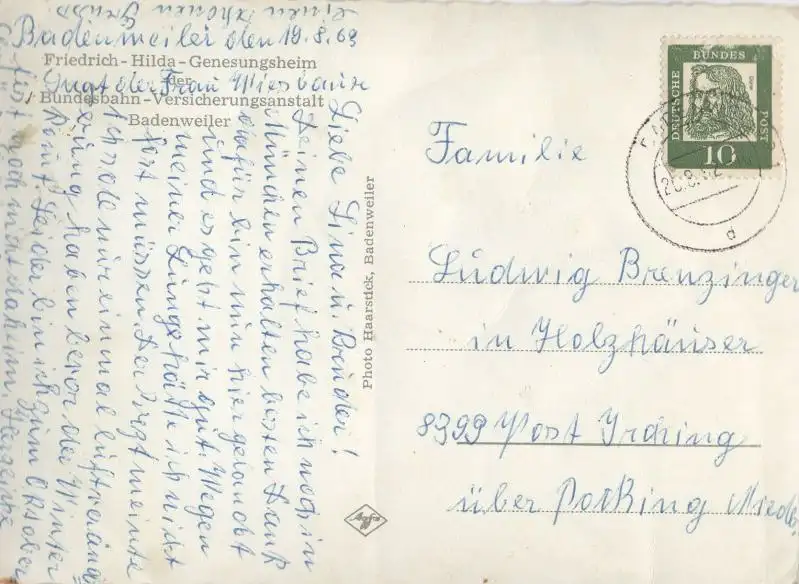 Badenweiler den 19.8.63
Friedrich-Hilda-Genesungsheim
der
Bundesbahn-Versicherungsanstalt
Badenweiler
Liebe Lina u. Bruder!
Deinen Brief habe ich noch in
München erhalten besten Dank
dafür bin nun hier gelandet
und es geht mir gut. Wegen
meiner Lunge hätte ich nicht
fort müssen. Der Arzt meinte
ich solle nur einmal luftverände
rung haben bevor der Winter
kommt. Leider bin ich zum Oktober
fest noch nicht daheim.
sagt der Frau
einen schönen
Gruss
Photo Haarstick, Badenweiler
Agfa
DEUTSCHE BUNDES POST
10
Familie
Ludwig Brenzinger
in Holzhäuser
8399 Post Irching
über Pocking
d